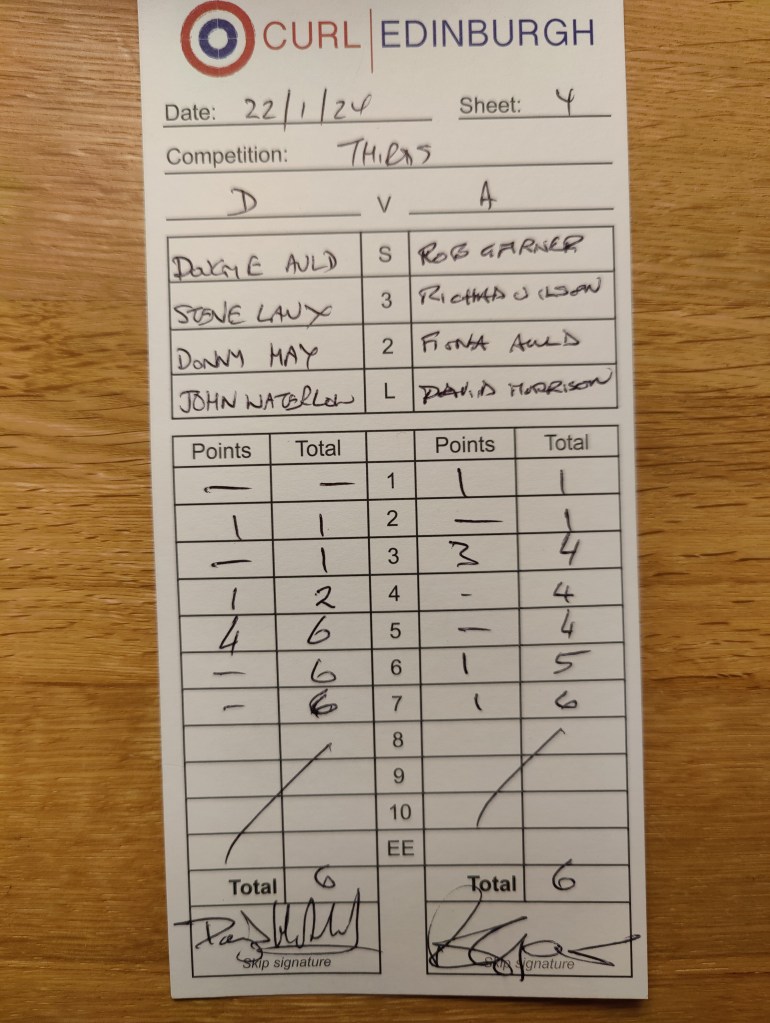 CURL EDINBURGH
Date: 22/1/24 Sheet: 4
Competition: THIRDS
D V A
DOUGIE AULD S ROB GARNER
STEVE LAUX 3 RICHARD WILSON
DONNY MAY 2 FIONA AULD
JOHN WATERLOW L DAVID MORRISON
Points Total Points Total
— — 1 1 1
1 1 2 — 1
— 1 3 3 4
1 2 4 - 4
4 6 5 — 4
— 6 6 1 5
- 6 7 1 6
8
9
10
EE
Total 6 Total 6
Skip signature Skip signature